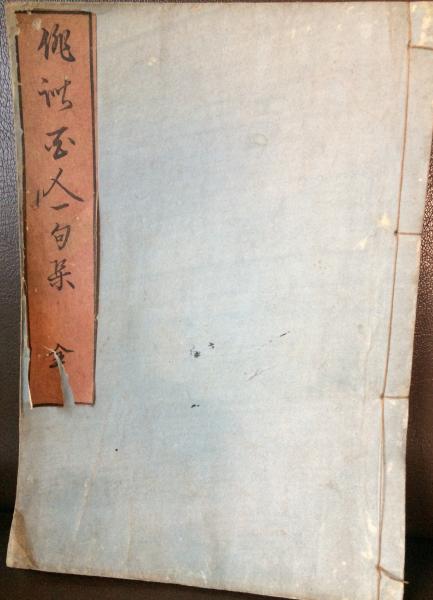 俳諧百人一句集 全